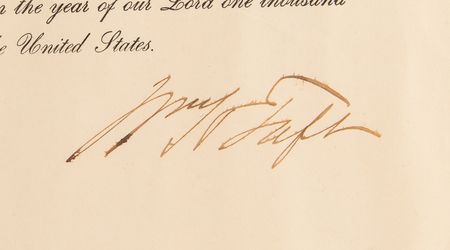 the year of our Lord one thousand
United States.
Wm H Taft